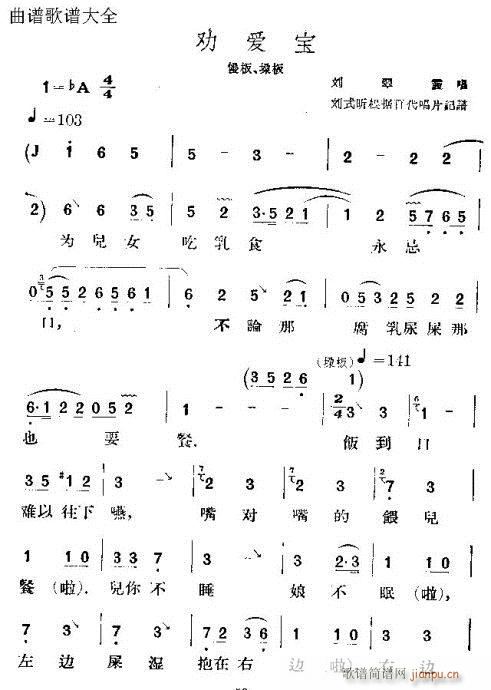 曲谱歌谱大全
劝爱宝
慢板、垛板
1=♭A 4/4
刘翠霞唱
♩=103
刘式昕根据百代唱片記譜
(J i 6 5 5 - 3 - 2 - 2 -
2) 6 6 3 5 5 5 2 3·5 2 1 1 2 5 7 6 5
为兒女 吃乳食 永忌
0 5 5 2 5 6 5 6 1 6 2 5 2 1 0 5 3 5 2
口, 不論那 腐乳尿屎那
(垛板) ♩=141
(3 5 2 6 1)
6·1 2 2 0 5 2 1 - 2/4 3 3 1 -
也要餐. 飯到口
3 5 #1 2 3 - 3 2 3 2 3 7 3
难以往下嚥, 嘴对嘴的餵兒
1 1 0 3 3 7 2 - 3 3 2·3 1 1 0
餐(啦). 兒你不睡 娘不眠(啦),
1 3 2 7 7 2 3 6 3 - 3 2 1 1
左边屎湿抱在右边啦)右边
歌谱简谱网
www.jianpu.cn